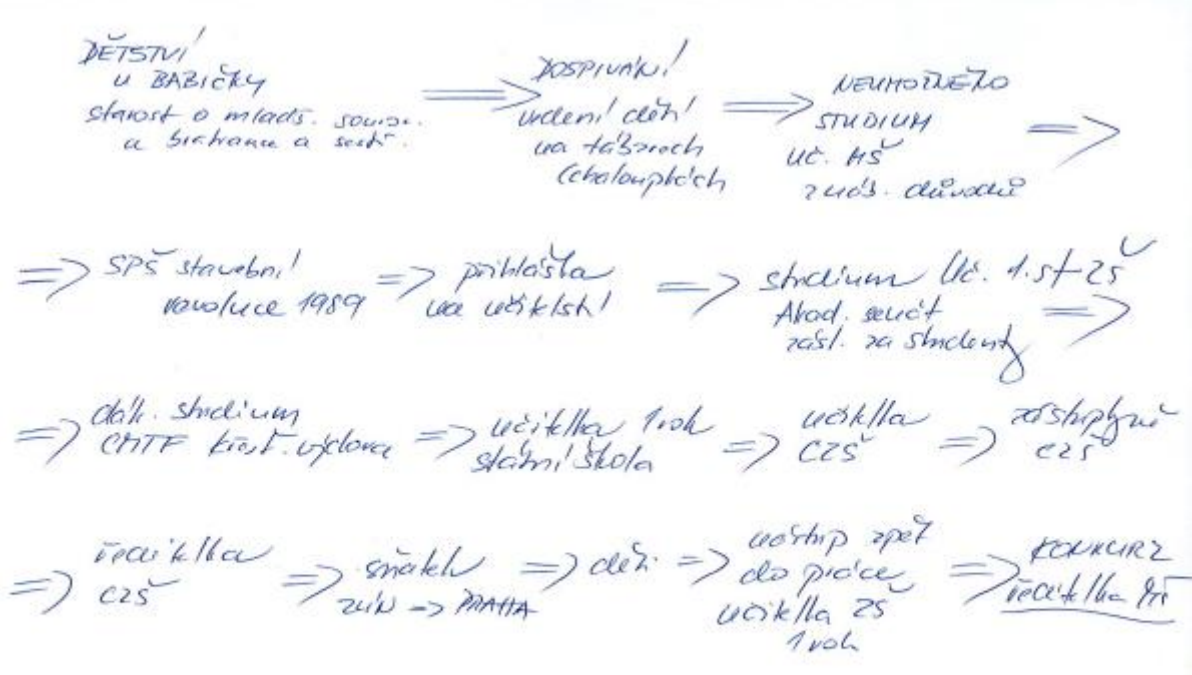 DĚTSTVÍ
u BABIČKY
starost o mladš. souroz.
a bratrance a sestř.
⇒ DOSPÍVÁNÍ
vedení dětí
na táborech
(chaloupkách
⇒ NEUMOŽNĚNO
STUDIUM
UČ. MŠ
z náb. důvodů
⇒
⇒ SPŠ stavební
revoluce 1989
⇒ přihláška
na učitelství
⇒ studium Uč. 1. st ZŠ
Akad. senát
zást. za studenty
⇒
⇒ dálk. studium
CMTF křesť. výchova
⇒ učitelka 1 rok
státní škola
⇒ učitelka
CZŠ
⇒ zástupkyně
CZŠ
⇒ ředitelka
CZŠ
⇒ sňatek
ZLÍN → PRAHA
⇒ děti
⇒ nástup zpět
do práce
učitelka ZŠ
1 rok
⇒ KONKURZ
ředitelka MŠ